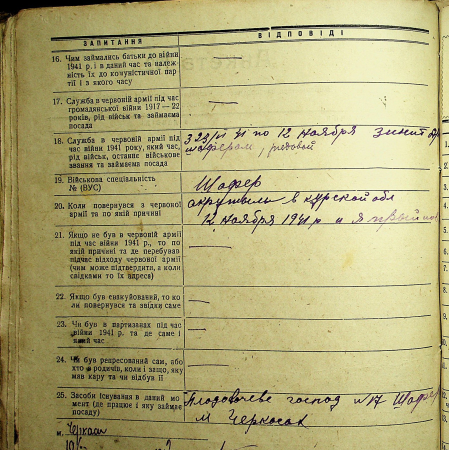 ЗАПИТАННЯ
ВІДПОВІДІ
16. Чим займались батьки до війни
1941 р. і в даний час та належ
ність їх до комуністичної пар
тії і з якого часу
17. Служба в червоній армії під час
громадянської війни 1917—22
років, рід військ та займаєма
посада
—
18. Служба в червоній армії під
час війни 1941 року, який час,
рід військ, останнє військове
звання та займаєма посада
по 12 ноября зенит
шофером, рядовой
19. Військова спеціальність
№ (ВУС)
Шофер
20. Коли повернувся з червоної
армії та по якій причині
в курской обл
12 ноября 1941 р и я
21. Якщо не був в червоній армії
під час війни 1941 р., то по
якій причині та де перебував
підчас відходу червоної армії
(чим може підтвердити, а коли
свідками то їх адреса)
—
22. Якщо був евакуйований, то ко
ли повернувся та звідки саме
—
23. Чи був в партизанах під час
війни 1941 р. та де саме і
який час
—
24. Чи був репресований сам, або
хто з родичів, коли і защо, яку
мав кару та чи відбув її
—
25. Засоби існування в даний мо
мент (де працює і яку займає
посаду)
господ №17 Шофер
м Черкаси
м. Черкаси